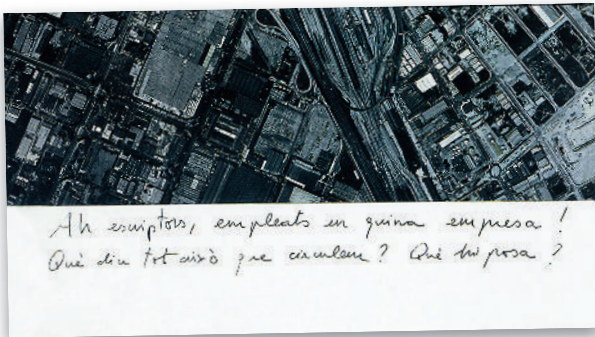 Ah escriptors, empleats en quina empresa !
Què diu tot això que circulem ? Què hi posa ?